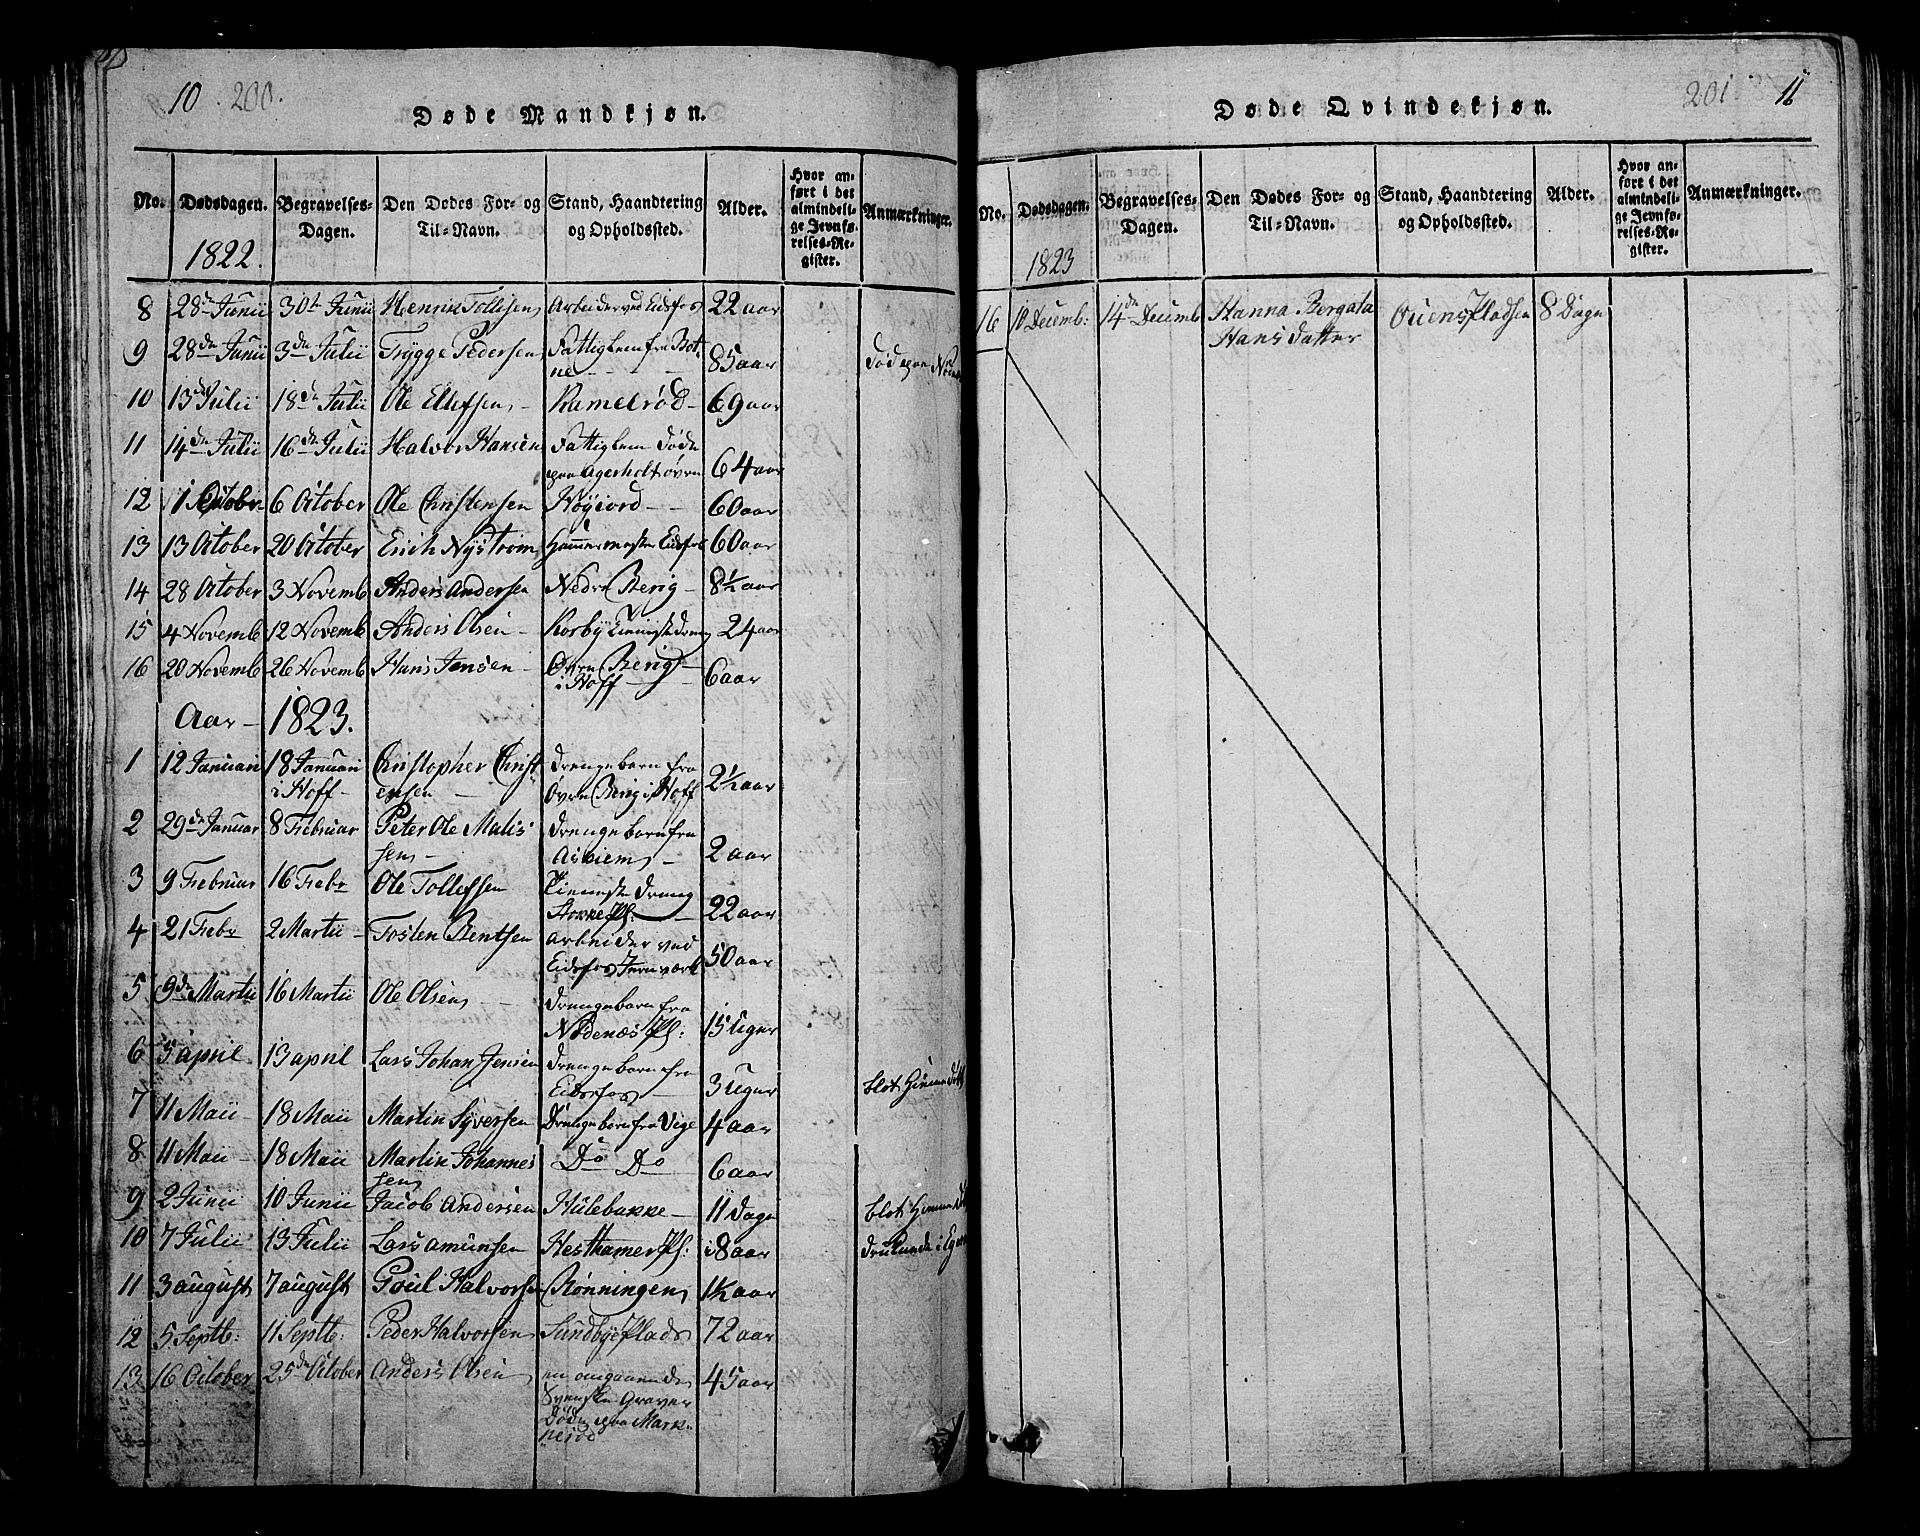 10 200.
Døde Mandkjøn.
No. Dødsdagen. Begravelses-Dagen. Den Dødes For- og Til-Navn. Stand, Haandtering og Opholdssted. Alder. Hvor anført i det almindelige Jevnførelses-Register. Anmærkninger.
1822.
8 28de Junii 30te Junii Henrik Tollefsen Arbeider ved Eidsfos 22 aar
9 28de Junii 3de Julii Trygge Pedersen Fattiglem fra Bot
ne 85 aar død paa
10 13de Julii 18de Julii Ole Ellefsen Ramelrød 69 aar
11 14de Julii 16de Julii Halvor Hansen Fattiglem døde
paa Agerholt øvre 64 aar
12 1 October 6 October Ole Christensen Høyjord 60 aar
13 13 October 20 October Erich Nystrøm Hammermester Eidsfos 60 aar
14 28 October 3 Novemb Anders Andersen Nedre Berig 8½ aar
15 4 Novemb 12 Novemb Anders Olsen Korby Tienistedreng 24 aar
16 20 Novemb 26 Novemb Hans Jensen Øvre Berig
i Hoff 6 aar
Aar 1823.
1 12 Januari 18 Januari Christopher Christ Drengebarn fra
i Hoff ensen Øvre Berig i Hoff 2½ aar
2 29de Januar 8 Februar Peter Ole Mathis Drengebarn fra
sen Asviem 2 aar
3 9 Februar 16 Febr Ole Tollefsen Tienneste dreng
Stokke Pl: 22 aar
4 21 Febr 2 Martii Tosten Bentsen Arbeider ved
Eidsfos Jernværk 50 aar
5 9de Martii 16 Martii Ole Olsen Drengebarn fra
Nødenæs Pl: 15 Uger
6 5 april 13 april Lars Johan Jensen Drengebarn fra
Eidsfos 3 Uger blot hiemmedøbt
7 11 Maii 18 Maii Martin Syversen Drengebarn fra Vige 4 aar
8 11 Maii 18 Maii Martin Johannes Do Do
sen 6 aar
9 2 Junii 10 Junii Jacob Andersen Hulebakke 11 dage blot hiemmedøbt
10 7 Julii 13 Julii Lars Amunsen Hesthamer Pl: 18 aar druknede i
11 3 august 7 august Poul Halvorsen Rønningen 1½ aar
12 5 Septb: 11 Septb: Peder Halvorsen Sundbye Plads 72 aar
13 16 October 25de October Anders Olsen en omgaaende 45 aar
Svenske Graver
Døde paa Mark
201 11
Døde Qvindekjøn.
No. Dødsdagen. Begravelses-Dagen. Den Dødes For- og Til-Navn. Stand, Haandtering og Opholdssted. Alder. Hvor anført i det almindelige Jevnførelses-Register. Anmærkninger.
1823
16 10 Decemb: 14de Decemb Hanna Bergata Ouens Pladsen 8 Dage
Hansdatter